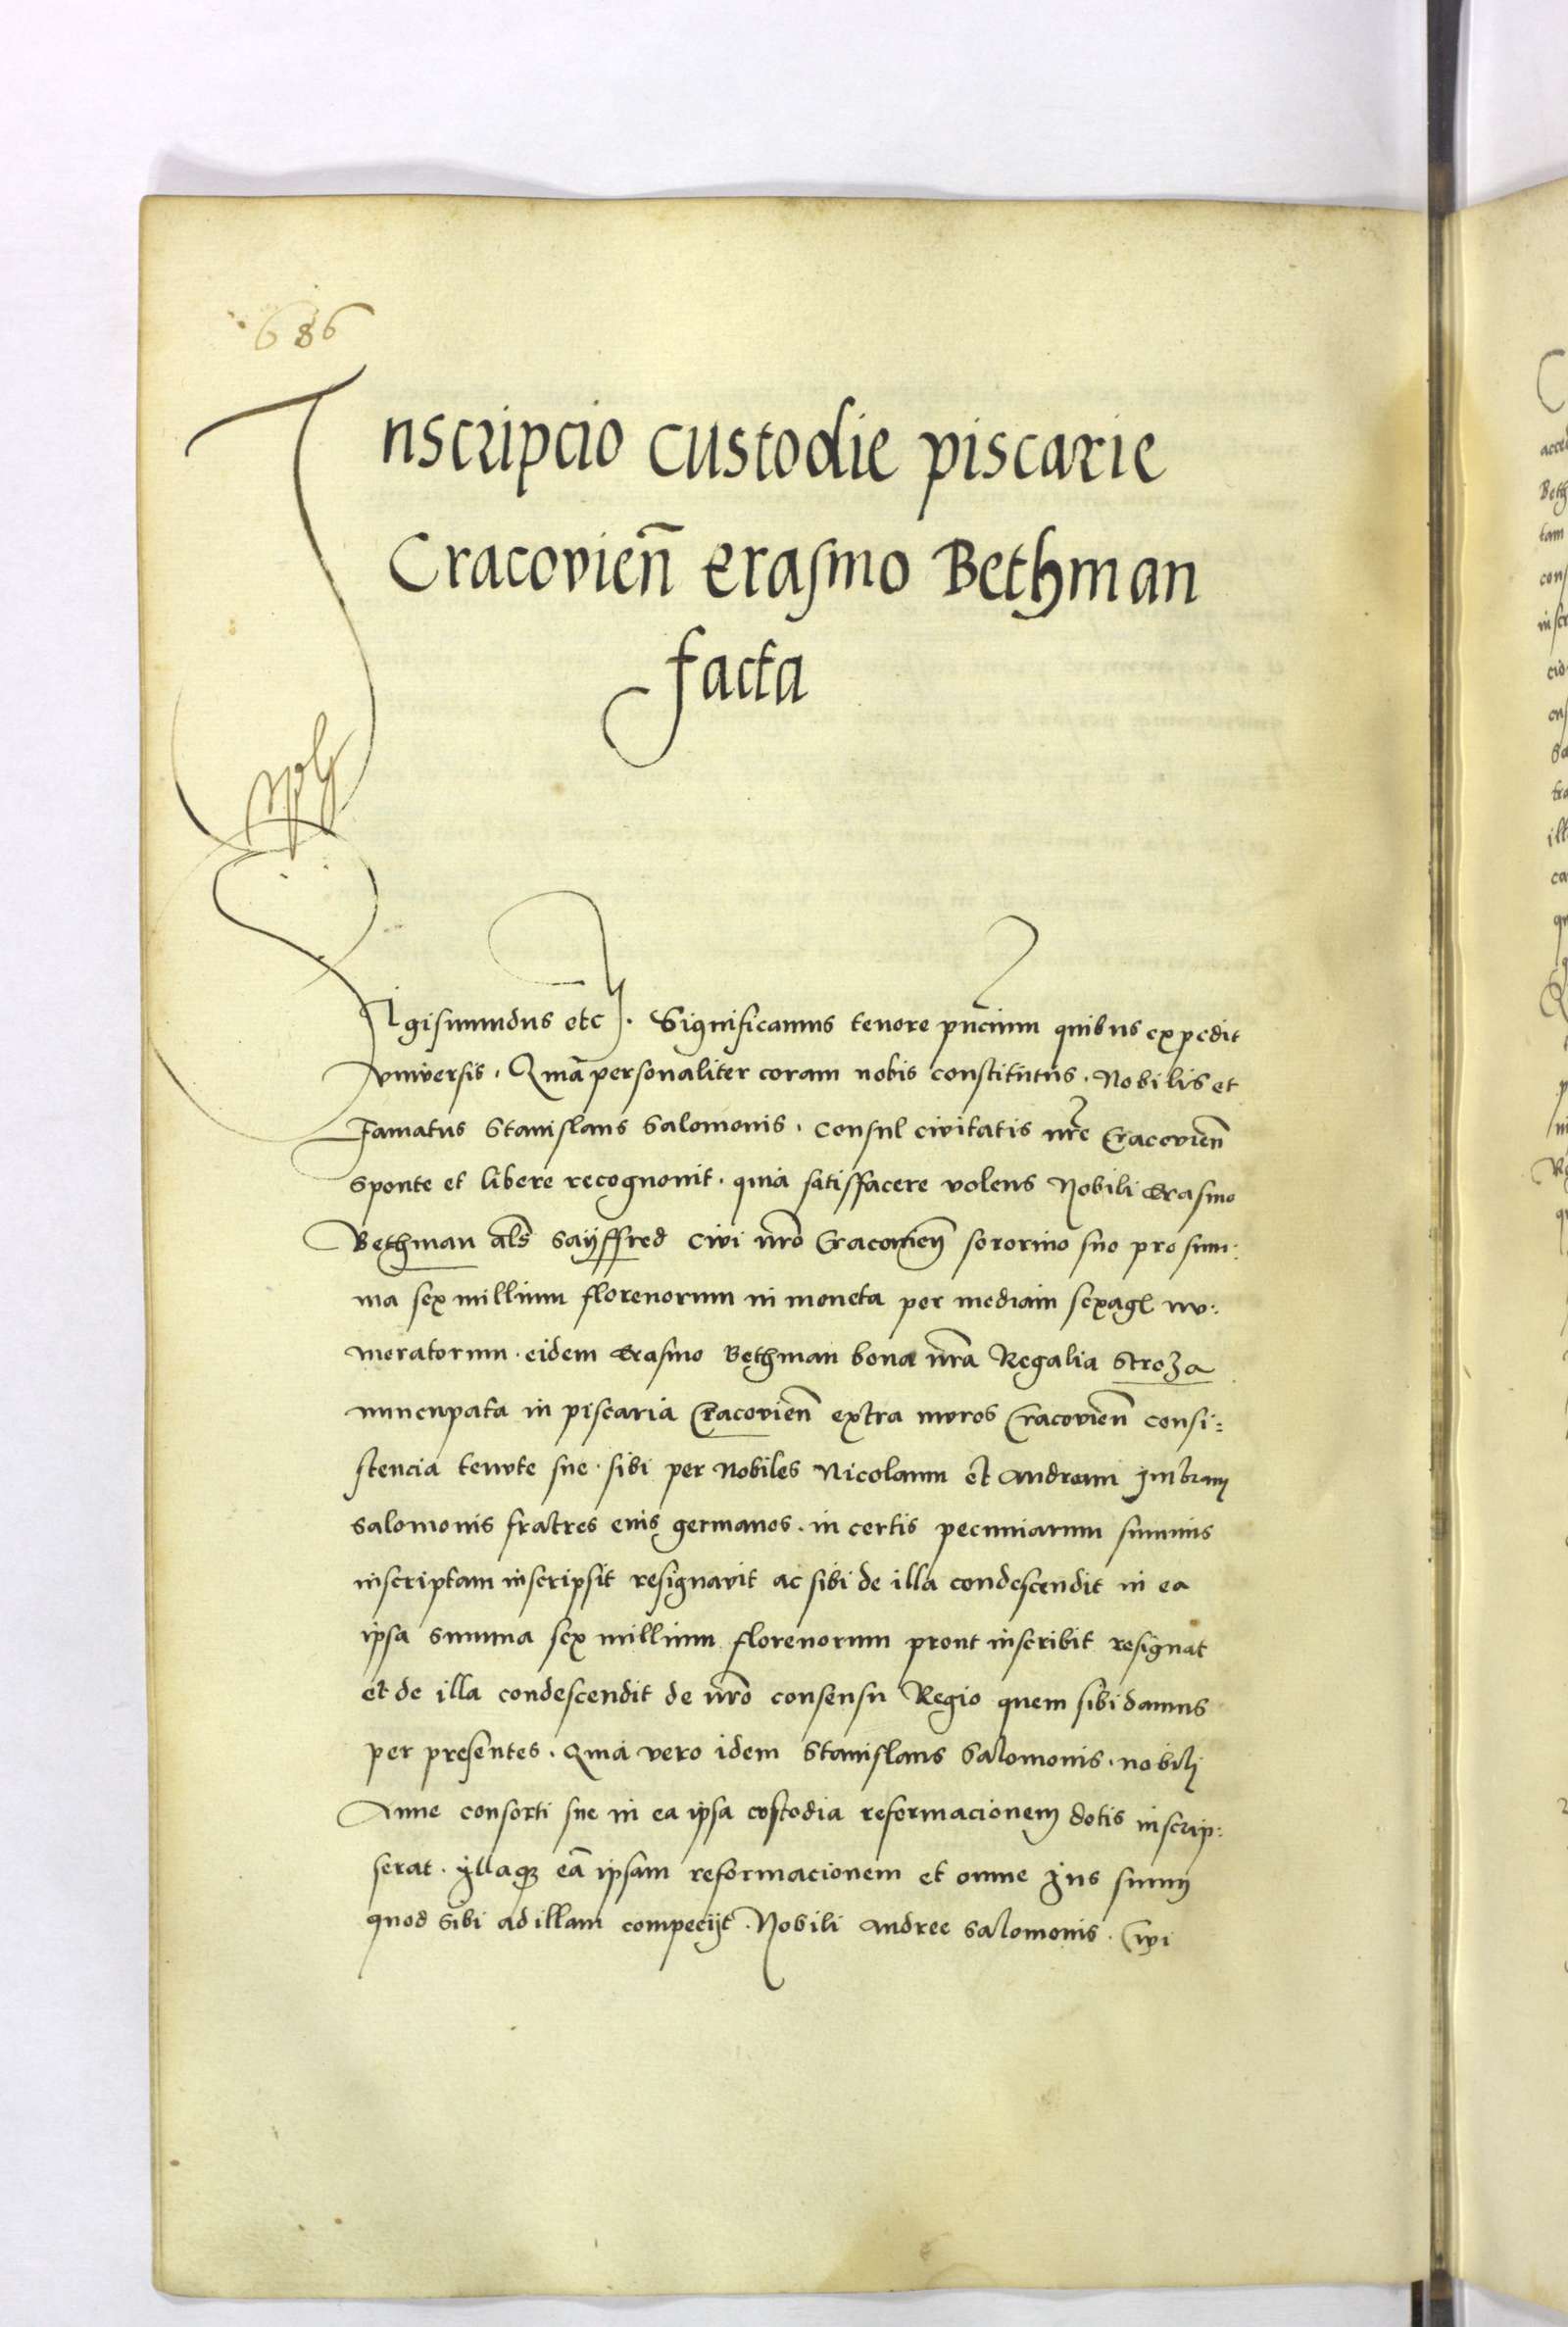 686
Inscripcio custodie piscarie
Cracovien̄ erasmo Bethman
facta
Sigismundus etc. Significamus tenore pn̄cium quibus expedit
vniversis. Quia personaliter coram nobis constitutus. Nobilis et
Famatus Stanislaus Salomonis. Consul civitatis nr̄e Cracovien̄
sponte et libere recognovit. quia satisfacere volens Nobili Erasmo
Bethman als̄ Sayffred civi nr̄o Cracovien̄ sororino suo pro sum:
ma sex millium florenorum in moneta per mediam sexagē nu:
meratorum. eidem Erasmo Bethman bona nr̄a Regalia Stroza
nuncupata in piscaria Cracovien̄ extra muros Cracovien̄ consi:
stencia tenute sue. sibi per Nobiles Nicolaum et Andream
Salomonis fratres eius germanos. in certis pecuniarum summis
inscriptam inscripsit resignavit ac sibi de illa condescendit in ea
ipsa summa sex millium florenorum prout inscribit resignat
et de illa condescendit de nr̄o consensu Regio quem sibi damus
per presentes. Quia vero idem Stanislaus Salomonis. nobili
Anne consorti sue in ea ipsa custodia reformacionem dotis inscrip:
serat. illaqꝫ eā ipsam reformacionem et omne Jus suum
quod sibi ad illam compeciit. Nobili Andree Salomonis. Civi